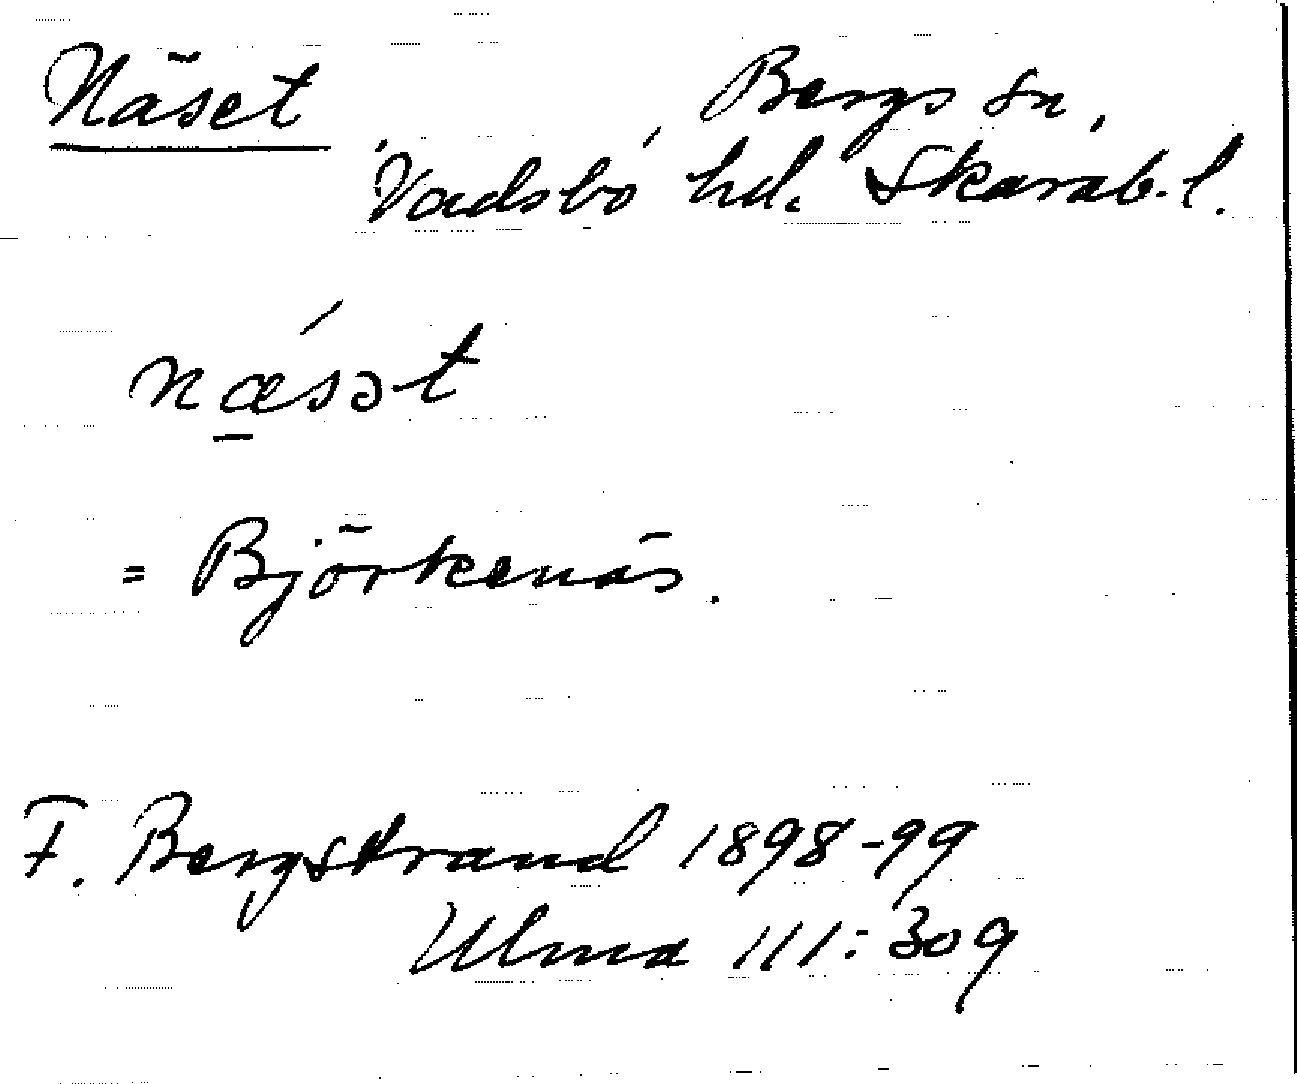 Näset Bergs sn,
Vadsbo hd. Skarab.l.
nǽ̱sət
= Björkenäs.
F. Bergstrand 1898-99
Ulma 111:309